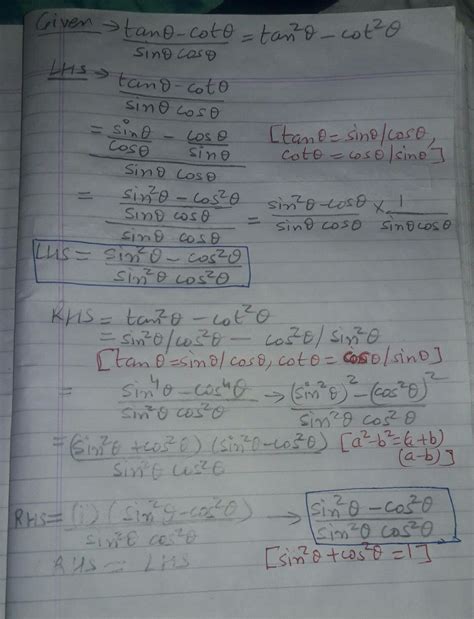 Given → tanθ - cotθ / sinθ cosθ = tan²θ - cot²θ
LHS → tanθ - cotθ / sinθ cosθ
= sinθ/cosθ - cosθ/sinθ / sinθ cosθ [tanθ = sinθ/cosθ,
cotθ = cosθ/sinθ]
= sin²θ - cos²θ / sinθ cosθ / sinθ cosθ = sin²θ - cosθ / sinθ cosθ × 1 / sinθ cosθ
LHS = sin²θ - cos²θ / sin²θ cos²θ
RHS = tan²θ - cot²θ
= sin²θ/cos²θ - cos²θ/sin²θ
[tanθ = sinθ/cosθ, cotθ = cosθ/sinθ]
= sin⁴θ - cos⁴θ / sin²θ cos²θ → (sin²θ)² - (cos²θ)² / sin²θ cos²θ
= (sin²θ + cos²θ) (sin²θ - cos²θ) / sin²θ cos²θ [a²-b² = (a+b)
(a-b)]
RHS = (1) (sin²θ - cos²θ) / sin²θ cos²θ → sin²θ - cos²θ / sin²θ cos²θ
[sin²θ + cos²θ = 1]
RHS = LHS